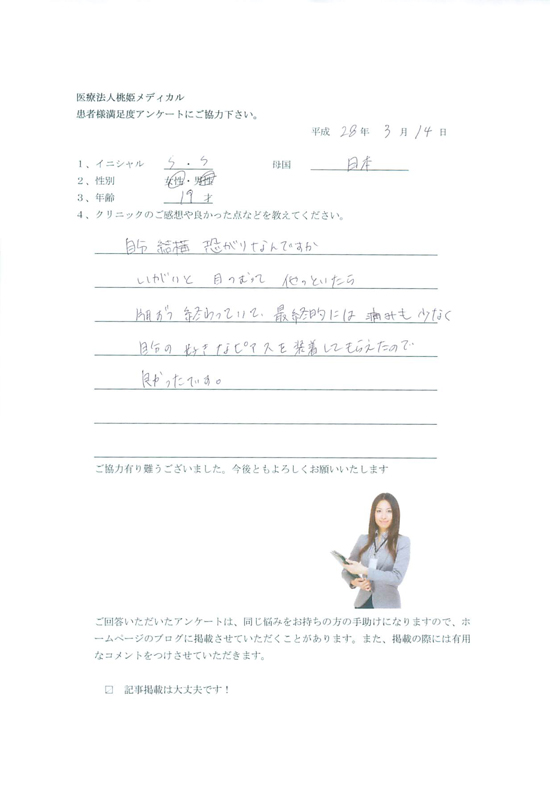 医療法人桃姫メディカル
患者様満足度アンケートにご協力下さい。
平成 28年 3月 14日
1、イニシャル S.S 母国 日本
2、性別 女性・男性
3、年齢 19才
4、クリニックのご感想や良かった点などを教えてください。
自分 結構 恐がりなんですが
いがいと 目つむって 待っといたら
終わっていて、最終的には 痛みも 少なく
自分の 好きなピアスを 装着してもらえたので
良かったです。
ご協力有り難うございました。今後ともよろしくお願いいたします
ご回答いただいたアンケートは、同じ悩みをお持ちの方の手助けになりますので、ホ
ームページのブログに掲載させていただくことがあります。また、掲載の際には有用
なコメントをつけさせていただきます。
記事掲載は大丈夫です！